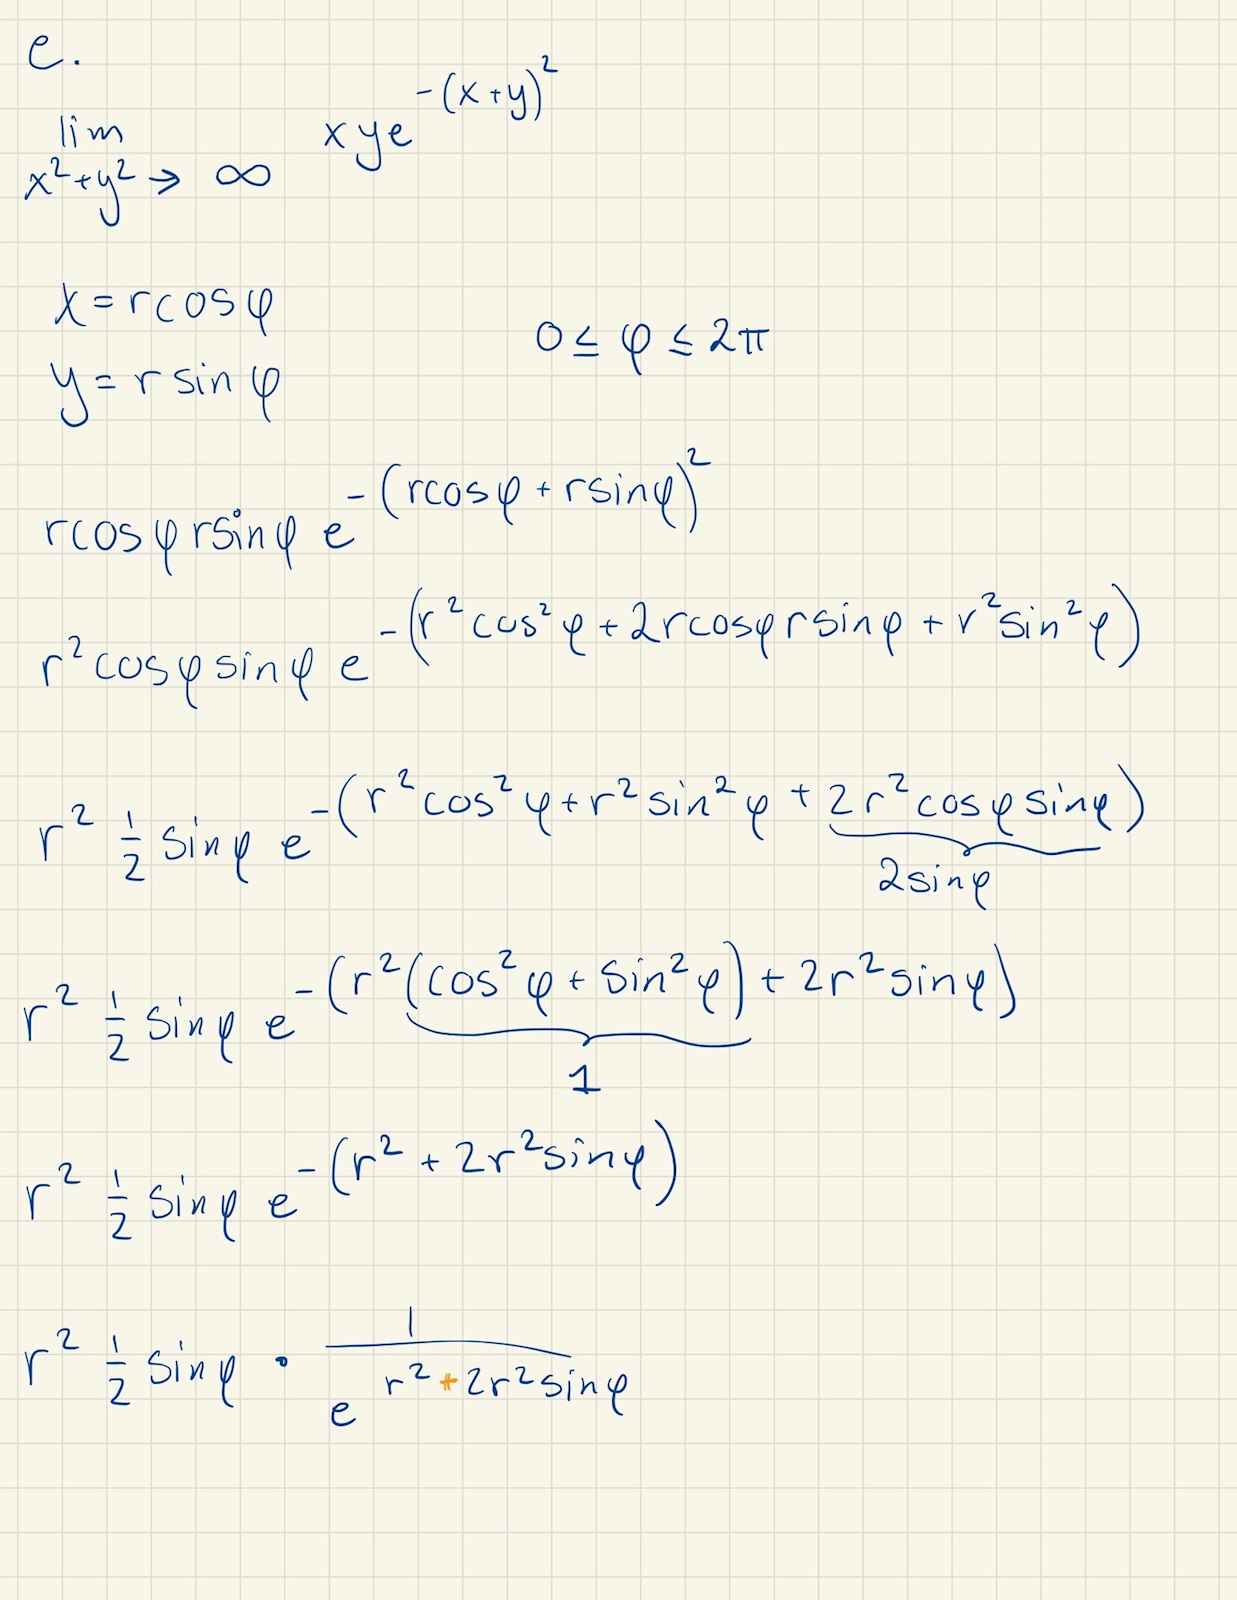 e.
lim x²+y² → ∞ xye^{-(x+y)²}
x = rcosφ
0 ≤ φ ≤ 2π
y = r sin φ
rcosφ rsinφ e^{-(rcosφ + rsinφ)²}
r² cosφ sinφ e^{-(r² cos² φ + 2rcosφ r sinφ + r² sin² φ)}
r² 1/2 sinφ e^{-(r² cos² φ + r² sin² φ + 2r² cosφ sinφ)}
2sinφ
r² 1/2 sinφ e^{-(r²(cos² φ + sin² φ) + 2r² sinφ)}
1
r² 1/2 sinφ e^{-(r² + 2r² sinφ)}
r² 1/2 sinφ · 1/e^{r² + 2r² sinφ}